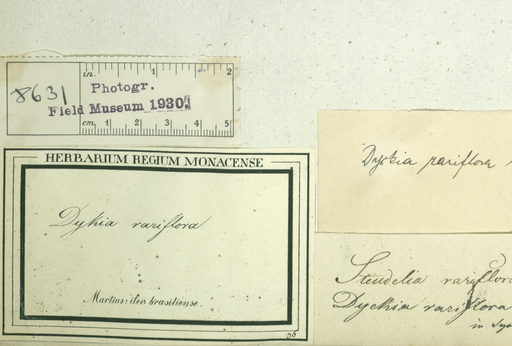 in. 1 2
8631
Photogr.
Field Museum 1930.
cm. 1 2 3 4 5
HERBARIUM REGIUM MONACENSE
Dykia rariflora
Martius: iter brasiliense.
Dyckia rariflora
Steudelia rariflora
Dyckia rariflora
in